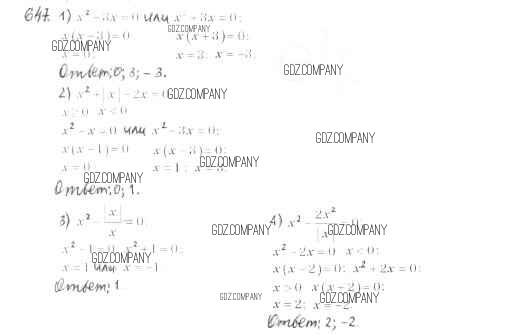 647. 1) x² - 3x = 0 или x² + 3x = 0;
GDZ.COMPANY
x(x - 3) = 0 x(x + 3) = 0
GDZ.COMPANY
x = 0; x = 3; x = -3.
Ответ: 0; 3; -3.
GDZ.COMPANY
2) x² + |x| - 2x = 0
GDZ.COMPANY
x ≥ 0 x < 0
x² - x = 0 или x² - 3x = 0;
GDZ.COMPANY
x(x - 1) = 0 x(x - 3) = 0;
x = 0 x = 1;
GDZ.COMPANY
GDZ.COMPANY
Ответ: 0; 1.
3) x² - |x|/x = 0;
GDZ.COMPANY
x² - 1 = 0 x² + 1 = 0;
GDZ.COMPANY
x = 1 или x = -1
Ответ: 1.
4) x² - 2x²/|x| = 0;
GDZ.COMPANY
x² - 2x = 0 x < 0;
x(x - 2) = 0; x² + 2x = 0;
x > 0 x(x + 2) = 0;
GDZ.COMPANY
GDZ.COMPANY
x = 2; x = -2.
Ответ: 2; -2.